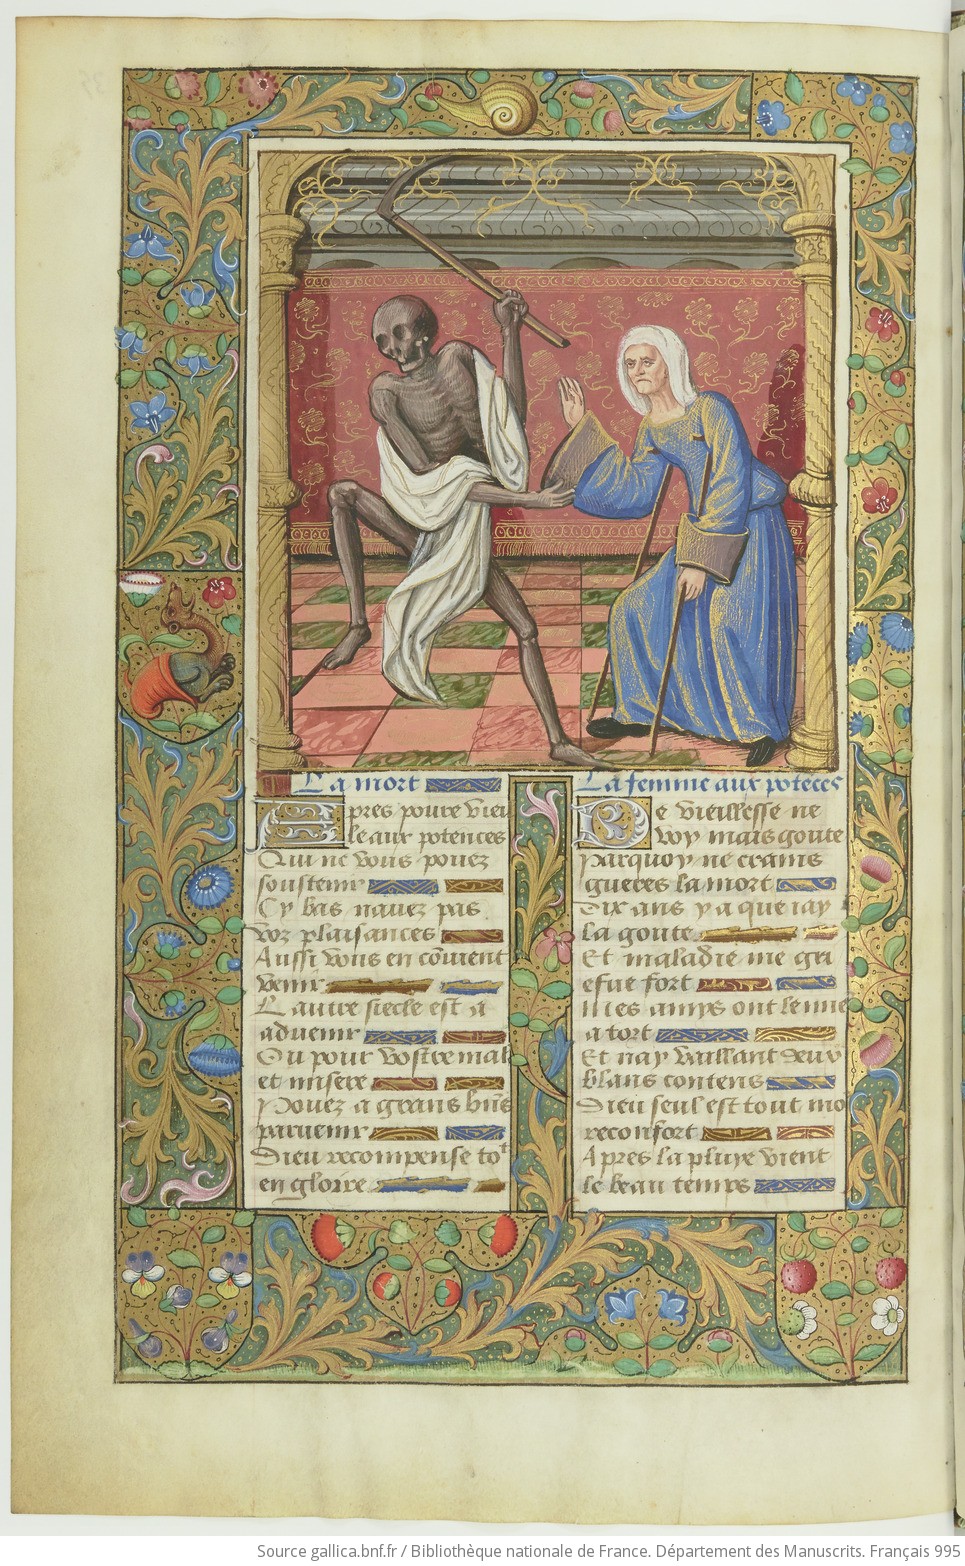 La mort
Apres povre vieil
le aux potences
Qui ne vous povez
soustenir
Cy bas navez pas
voz plaisances
Aussi vous en cõvient
venir
Lautre siecle est a
advenir
Ou pour vostre mal
et misere
Povez a grans biẽs
parvenir
Dieu recompense toᵗ
en gloire
La femme aux poteces
De vieillesse ne
voy mais goute
Parquoy ne crains
gueres la mort
Dix ans y a que iay
la goute
Et maladie me gri
efue fort
Mes amys ont le mie
a tort
Et nay vaillant deux
blans contens
Dieu seul est tout mo
reconfort
Apres la pluye vient
le beau temps
Source gallica.bnf.fr / Bibliothèque nationale de France. Département des Manuscrits. Français 995